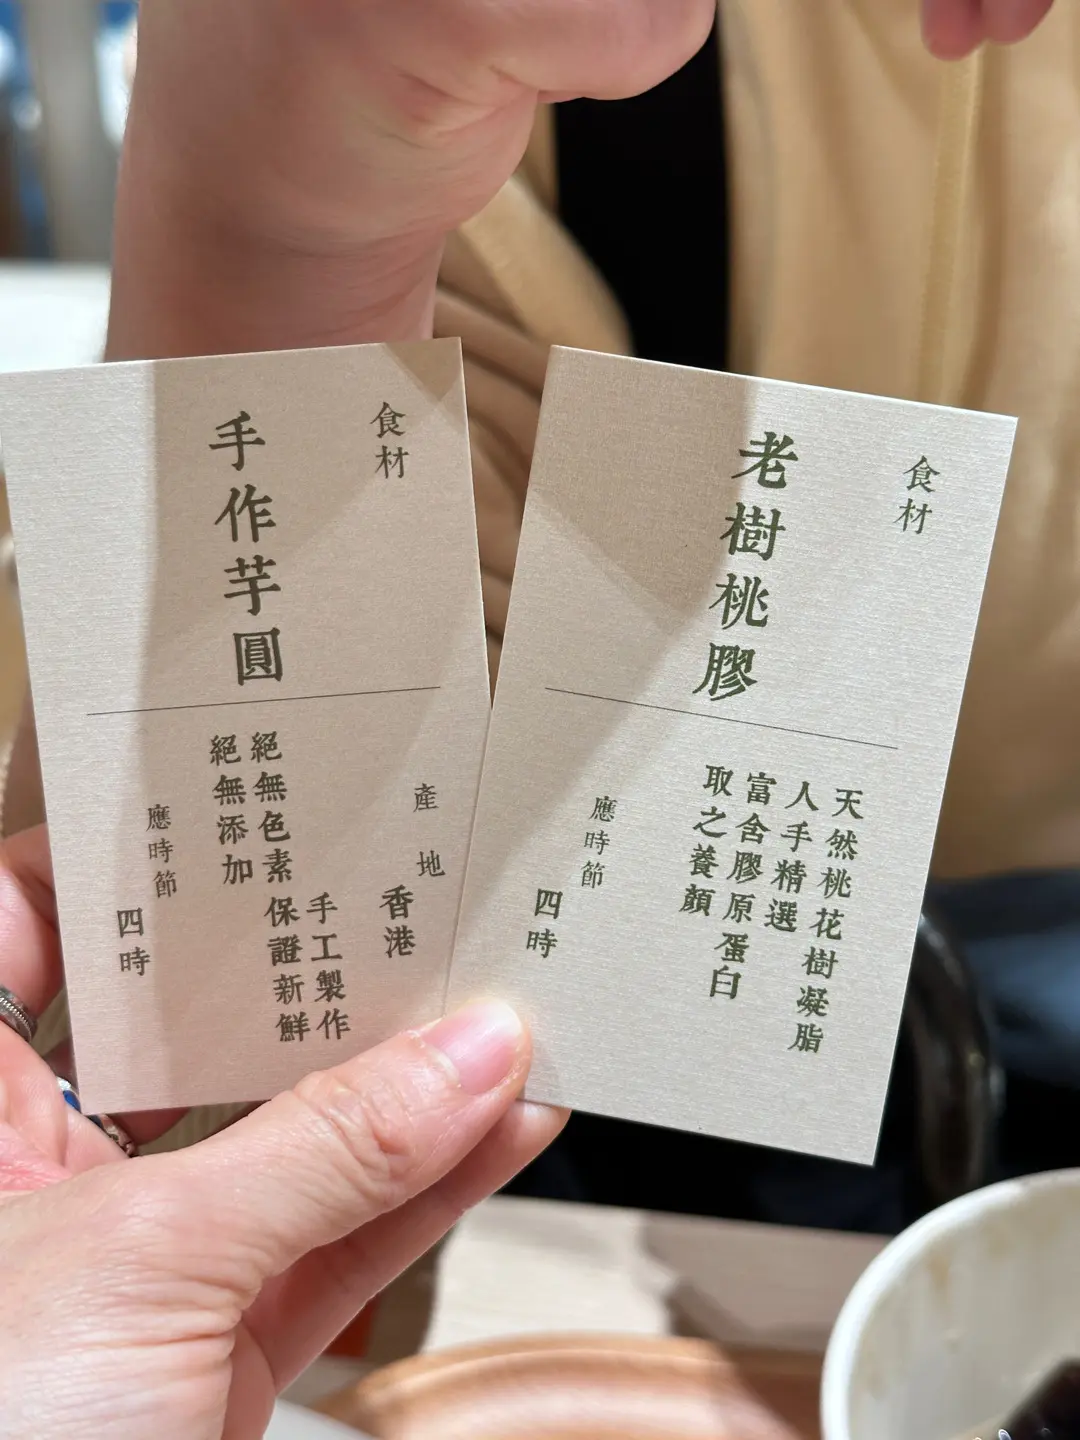 食材
手作芋圓
產地
香港
手工製作
保證新鮮
絕無色素
絕無添加
應時節
四時
食材
老樹桃膠
天然桃花樹凝脂
人手精選
富舍膠原蛋白
取之養顏
應時節
四時